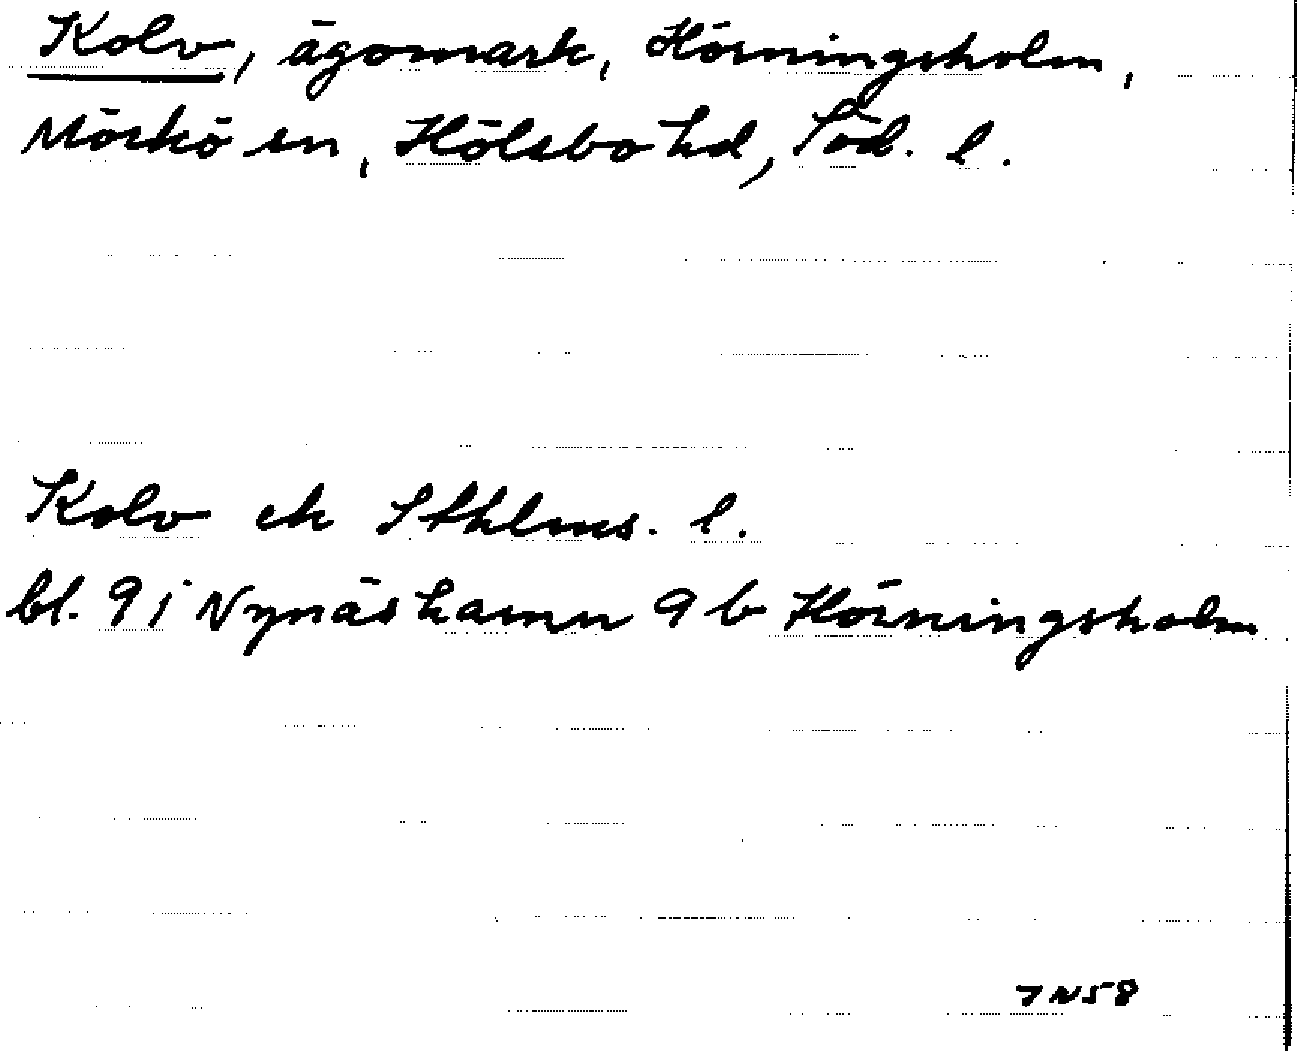 Kolv, ägomark, Hörningsholm,
Mörkö sn, Hölebo hd, Söd. l.
Kolv ek Sthlms. l.
bl. 9 i Nynäshamn 9 b Hörningsholm
7N58